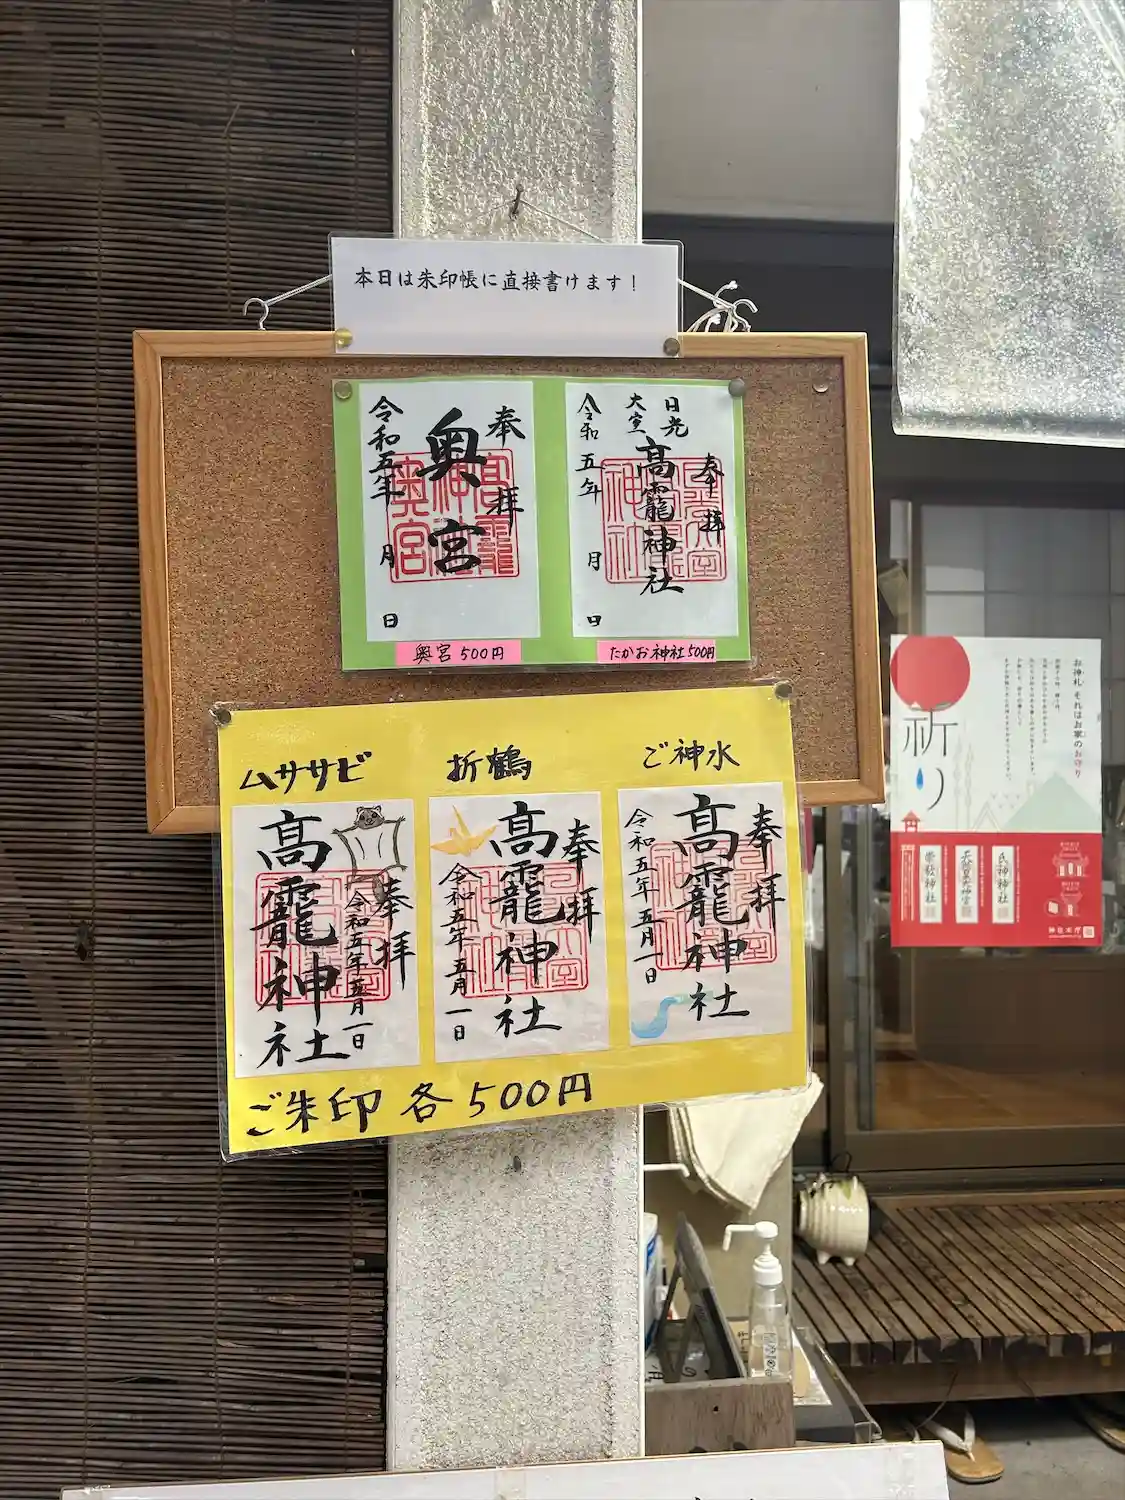 本日は朱印帳に直接書けます！
奉拝
奥宮
令和五年 月 日
高龗神社
奥宮
奥宮 500円
日光
大室
奉拝
高龗神社
令和 五年 月 日
たかお神社500円
ムササビ
折鶴
ご神水
奉拝
令和五年五月一日
高龗神社
奉拝
高龗神社
令和五年五月一日
奉拝
高龗神社
令和五年五月一日
ご朱印 各500円
お神札、それはお家のお守り
祈り
氏神神社
天照皇大神宮
崇敬神社
神社本庁